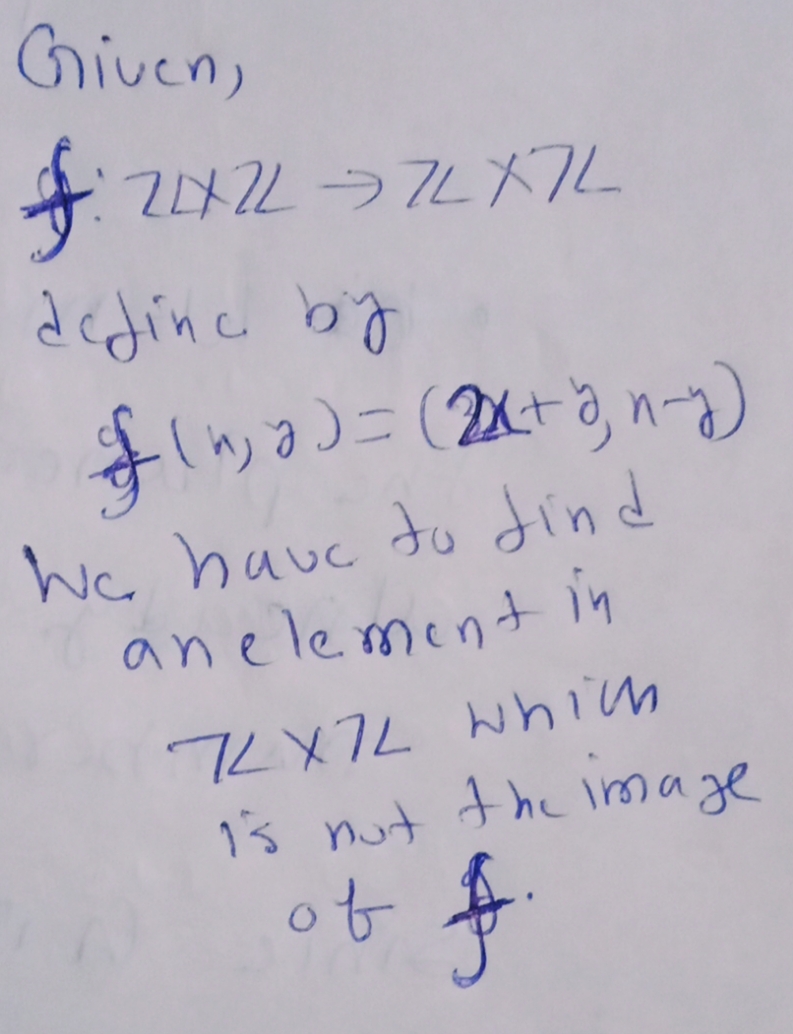 Given,
f: ℤ×ℤ → ℤ×ℤ
define by
f(x,y) = (2x+y, x-y)
We have to find
an element in
ℤ×ℤ which
is not the image
of f.